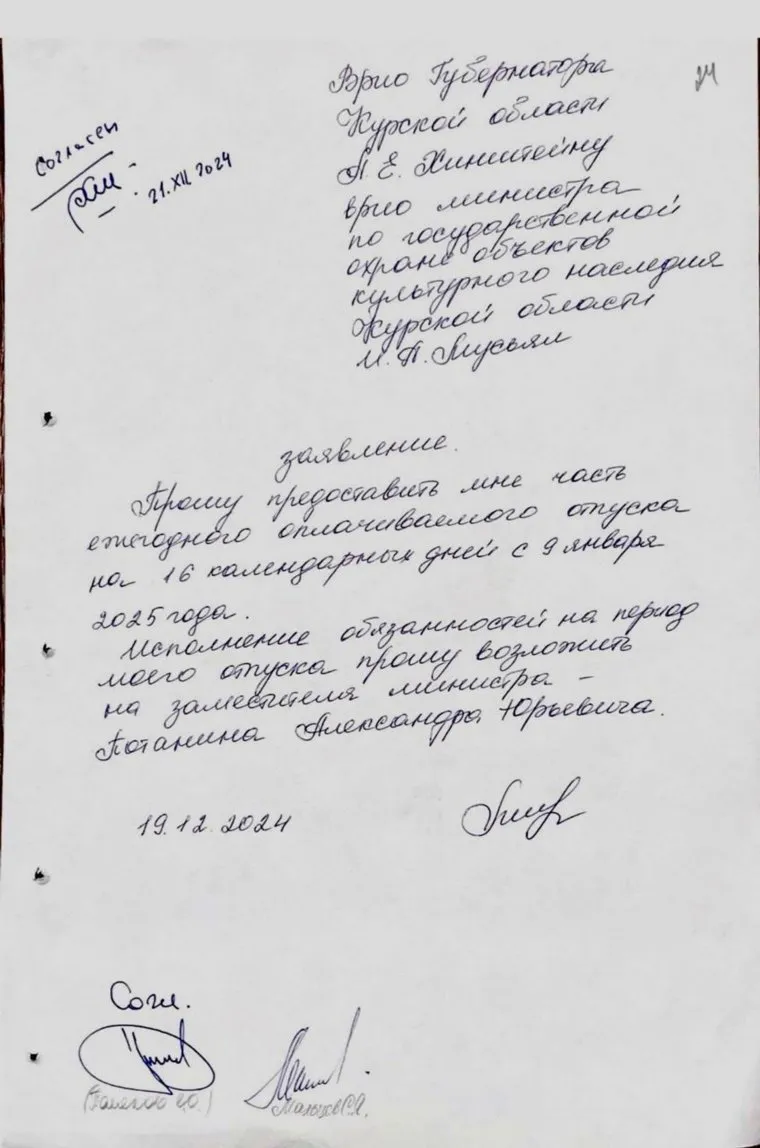 24
Согласен
21.XII 2024
Врио Губернатора
Курской области
А. Е. Хинштейну
врио министра
по государственной
охране объектов
культурного наследия
Курской области
И. А. Мусьял
заявление.
Прошу предоставить мне часть
ежегодного оплачиваемого отпуска
на 16 календарных дней с 9 января
2025 года.
Исполнение обязанностей на период
моего отпуска прошу возложить
на заместителя министра –
Потанина Александра Юрьевича.
19.12.2024
Согл.